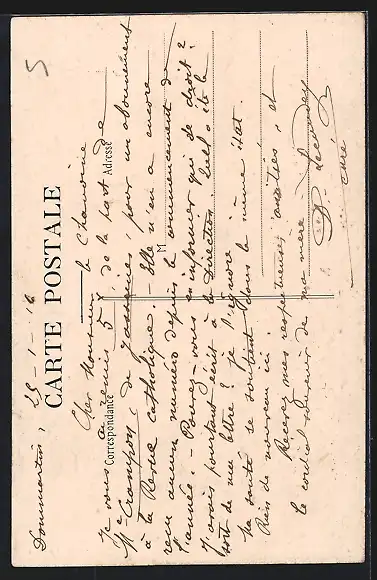 5
Dommartin, 25-1-16
CARTE POSTALE
Correspondance
Adresse
M
Cher Monsieur le Chanoine
Je vous ai remis 5 de la part de
Mr Crampon, de pour un abonnement
à la Revue catholique. Elle n'en a encore
reçu aucun numéro depuis le commencement de
l'année. Pouvez-vous en informer qui de droit ?
J'avais pourtant écrit à la Direction. Quel a été le
sort de ma lettre ? je l'ignore.
Ma santé se soutient dans le même état.
Rien de nouveau ici.
Recevez mes respectueuses amitiés, et
le cordial souvenir de ma mère
curé